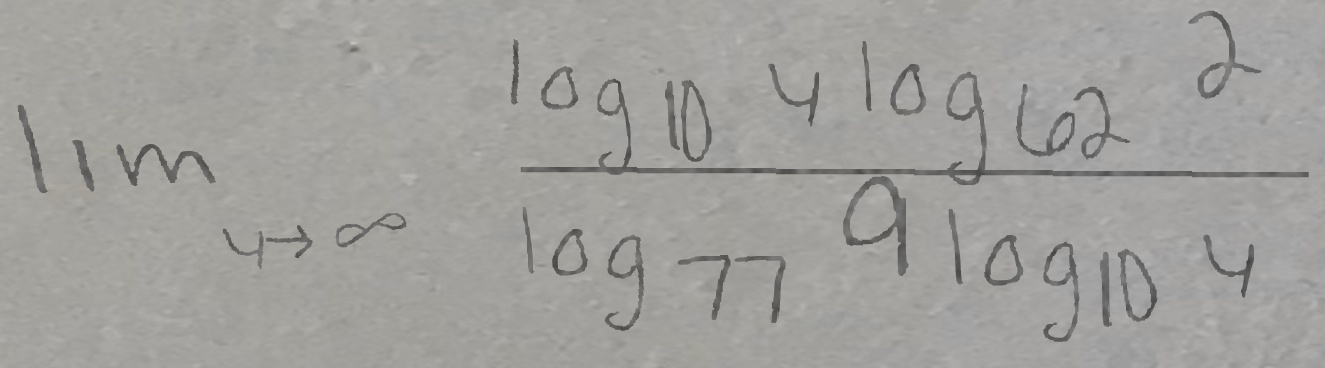 \lim_{y \to \infty} \frac{\log_{10} y \log_{62} 2}{\log_{77} 9 \log_{10} y}